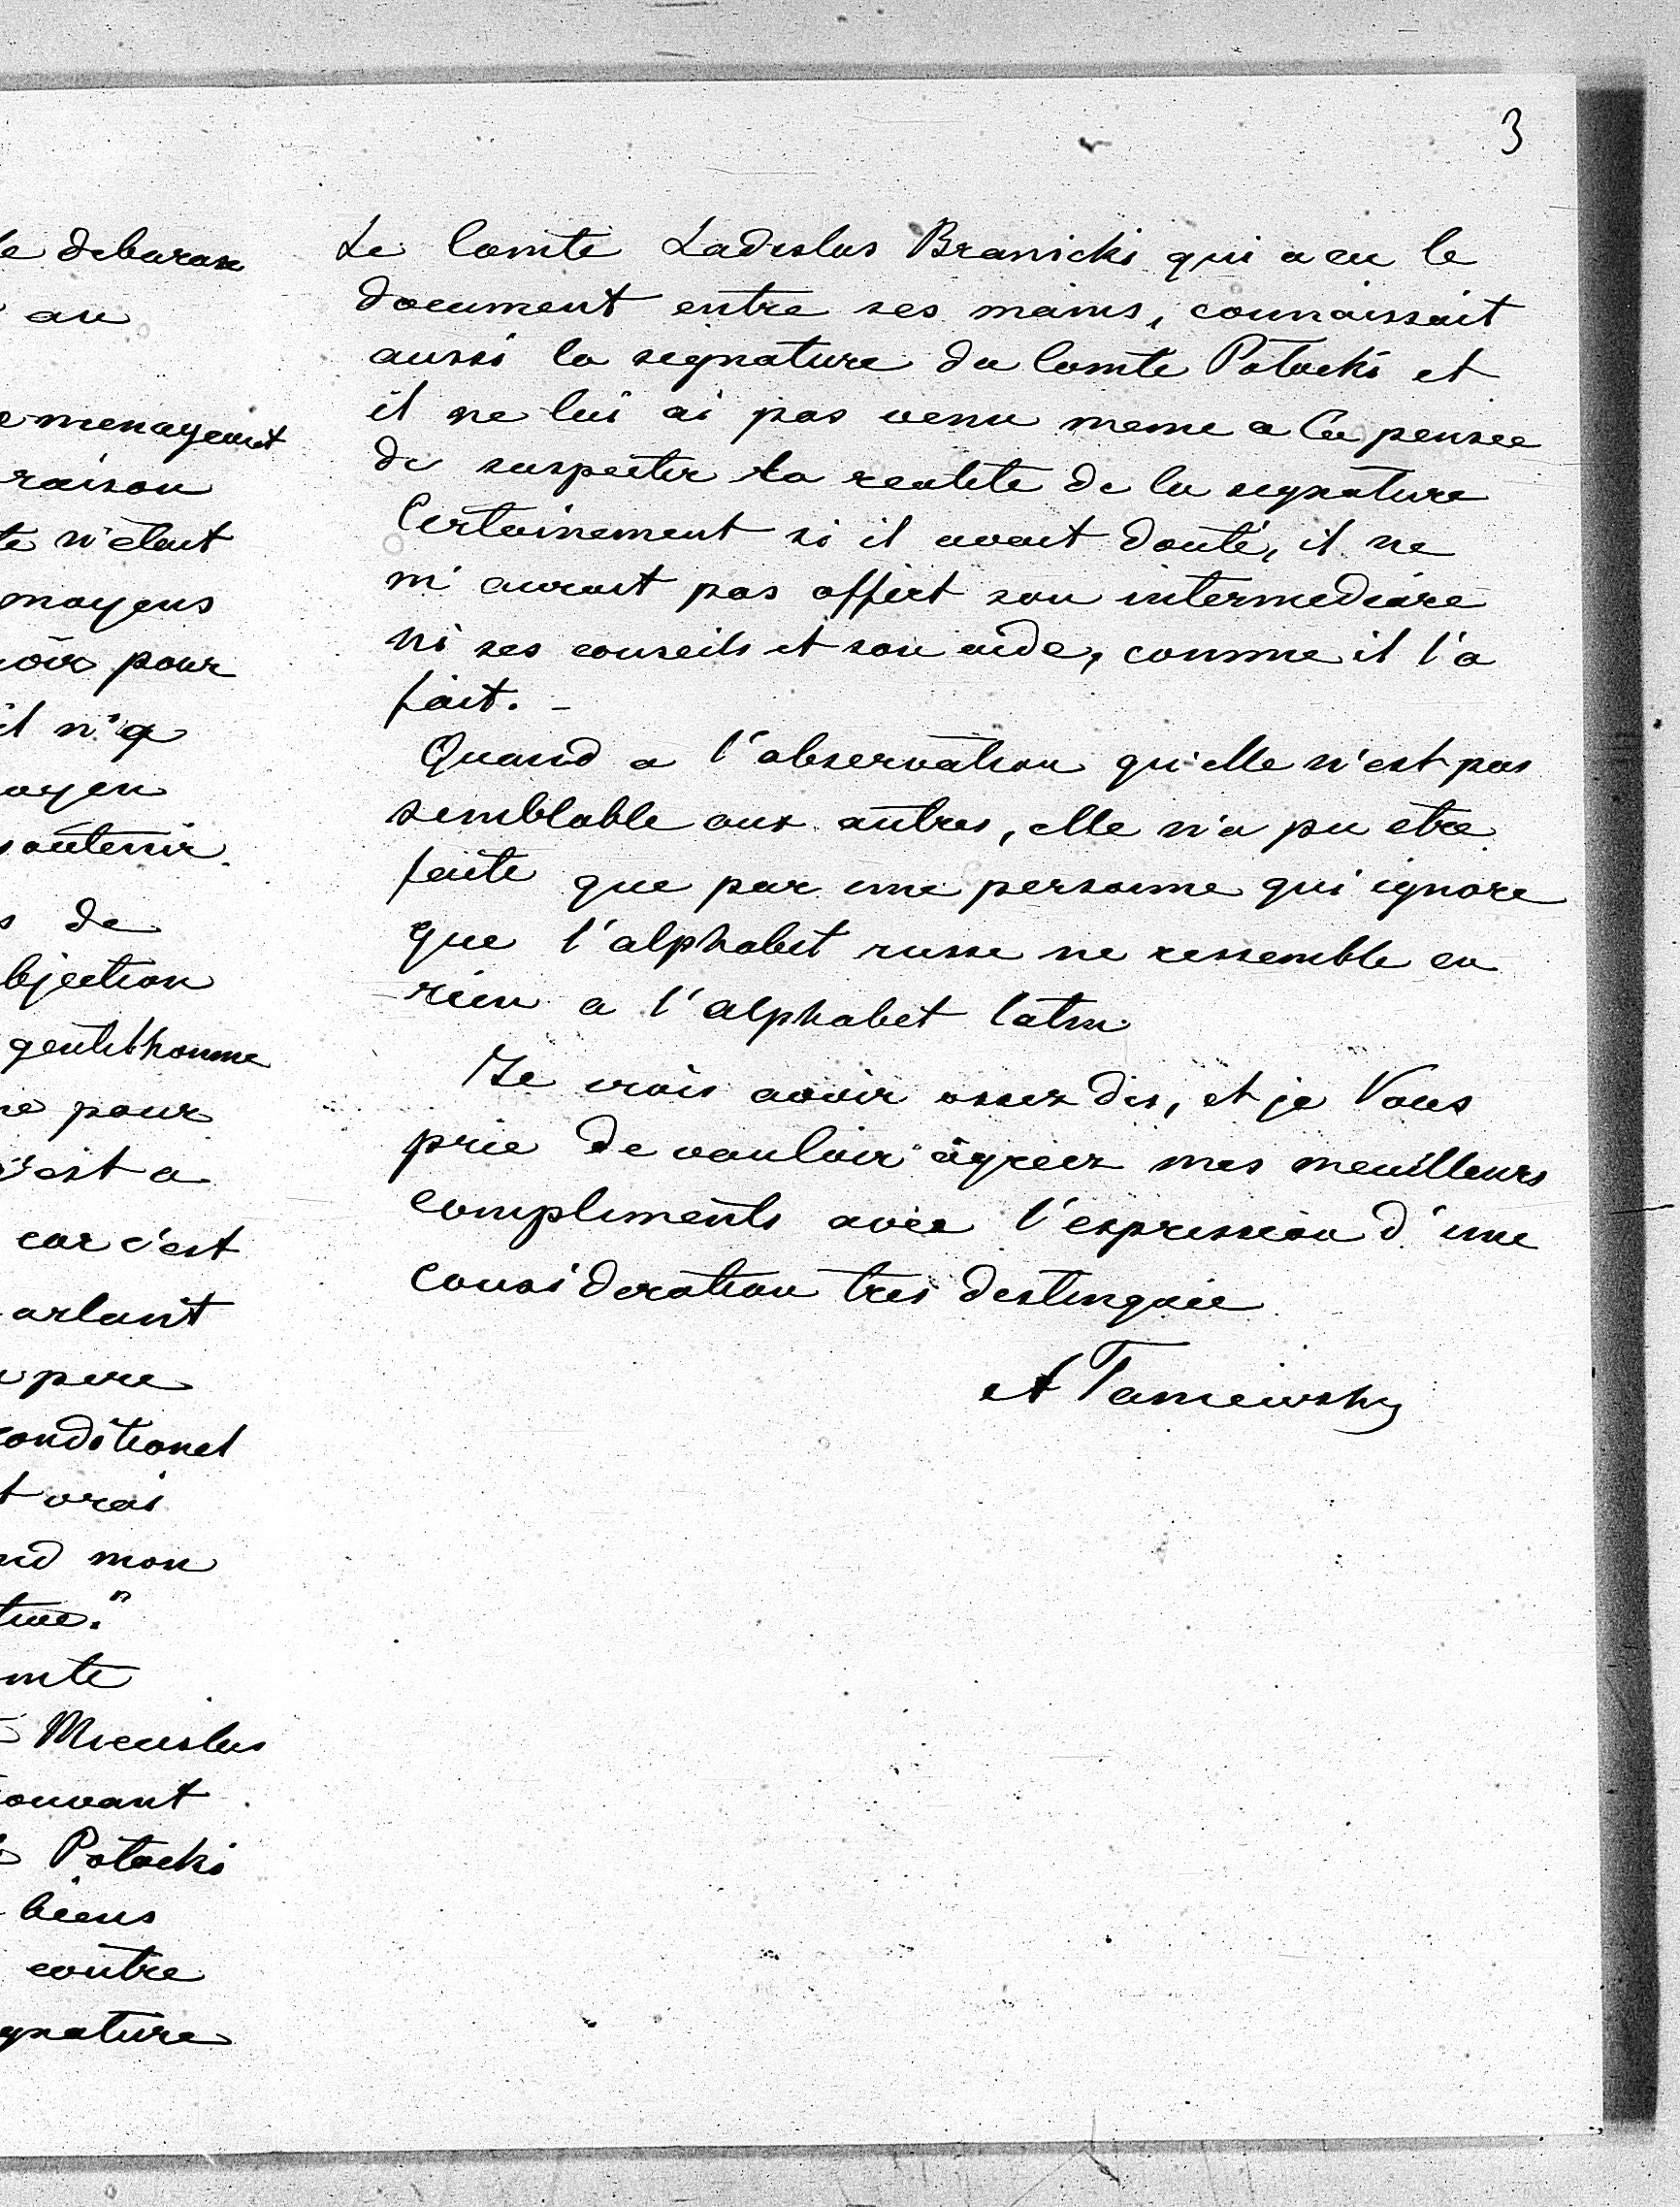 3
le debarase
au
menagement
raison
te n'etait
moyens
oir pour
il n'a
oyen
soutenir.
s de
bjection
gentilhomme
ne pour
c'est a
car c'est
arlant
pere
conditionel
t vrai
nd mon
tive."
mte
Mieceslas
ouvant
Potocki
biens
contre
gnature
Le Comte Ladislas Branicki qui a eu le
document entre ses mains, connaissait
aussi la signature du Comte Potocki et
il ne lui ai pas venu meme a la pensee
de suspecter la realite de la signature
Certainement si il avait douté, il ne
m'aurait pas offert son intermediare
ni ses conseils et son aide, comme il l'a
fait. -
Quand a l'observation qu'elle n'est pas
semblable aux autres, elle n'a pu etre
faite que par une personne qui ignore
que l'alphabet russe ne ressemble en
rien a l'alphabet latin.
Je crois avoir assez dis, et je Vous
prie de vouloir agreez mes meuilleurs
compliments avec l'expression d'une
consideration tres distinguée